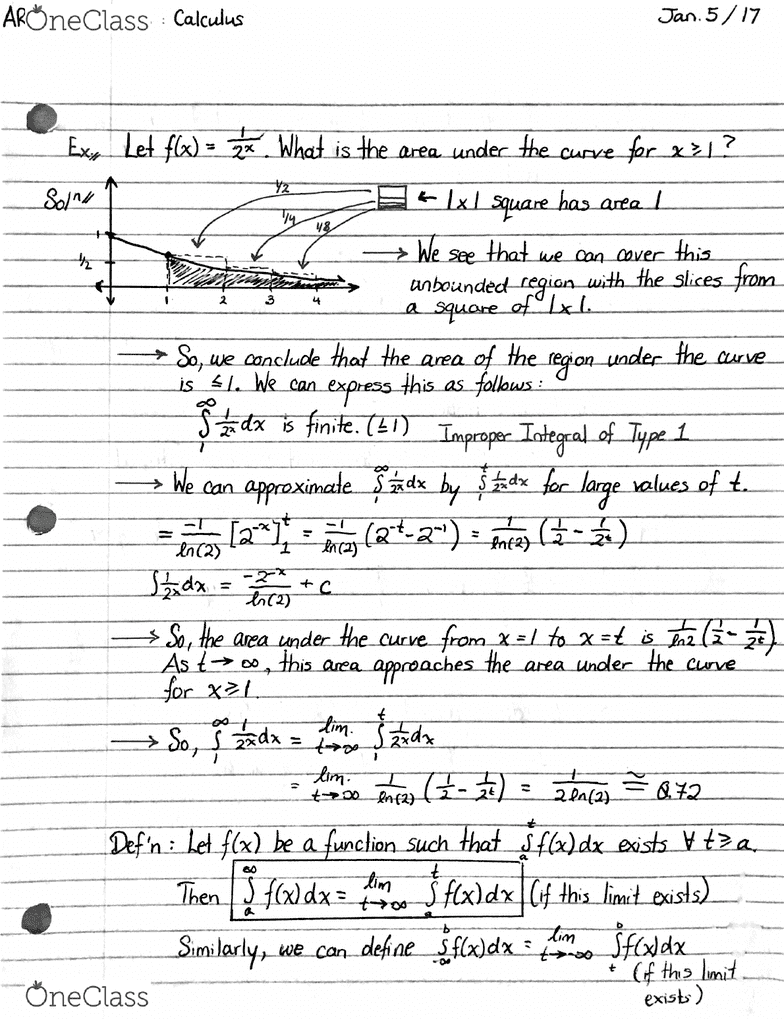 AROneClass : Calculus Jan. 5/17
Ex,, Let f(x) = 1/2^x. What is the area under the curve for x ≥ 1?
Sol'n,, 1/2 1/4 1/8 ← 1x1 square has area 1
1 1/2 1 2 3 4
→ We see that we can cover this
unbounded region with the slices from
a square of 1x1.
→ So, we conclude that the area of the region under the curve
is ≤ 1. We can express this as follows:
∫_1^∞ 1/2^x dx is finite. (≤1) Improper Integral of Type 1
→ We can approximate ∫_1^∞ 1/2^x dx by ∫_1^t 1/2^x dx for large values of t.
= -1/ln(2) [2^-x]_1^t = -1/ln(2) (2^-t - 2^-1) = 1/ln(2) (1/2 - 1/2^t)
∫ 1/2^x dx = -2^-x/ln(2) + C
→ So, the area under the curve from x=1 to x=t is 1/ln2 (1/2 - 1/2^t).
As t → ∞, this area approaches the area under the curve
for x ≥ 1.
→ So, ∫_1^∞ 1/2^x dx = lim t→∞ ∫_1^t 1/2^x dx
= lim. t→∞ 1/ln(2) (1/2 - 1/2^t) = 1/2ln(2) ≅ 0.72
Def'n: Let f(x) be a function such that ∫_a^t f(x)dx exists ∀ t ≥ a.
Then ∫_a^∞ f(x)dx = lim t→∞ ∫_a^t f(x)dx (if this limit exists)
Similarly, we can define ∫_-∞^b f(x)dx = lim t→-∞ ∫_t^b f(x)dx
(if this limit
exists)
OneClass